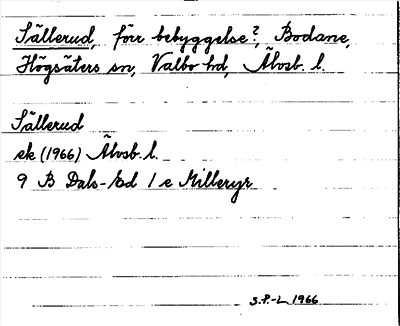 Sällerud, förr bebyggelse?, Bodane,
Högsäters sn, Valbo hd, Älvsb. l.
Sällerud
ek (1966) Älvsb. l.
9 B Dals-Ed 1 e Milleryr
S.P.-L 1966